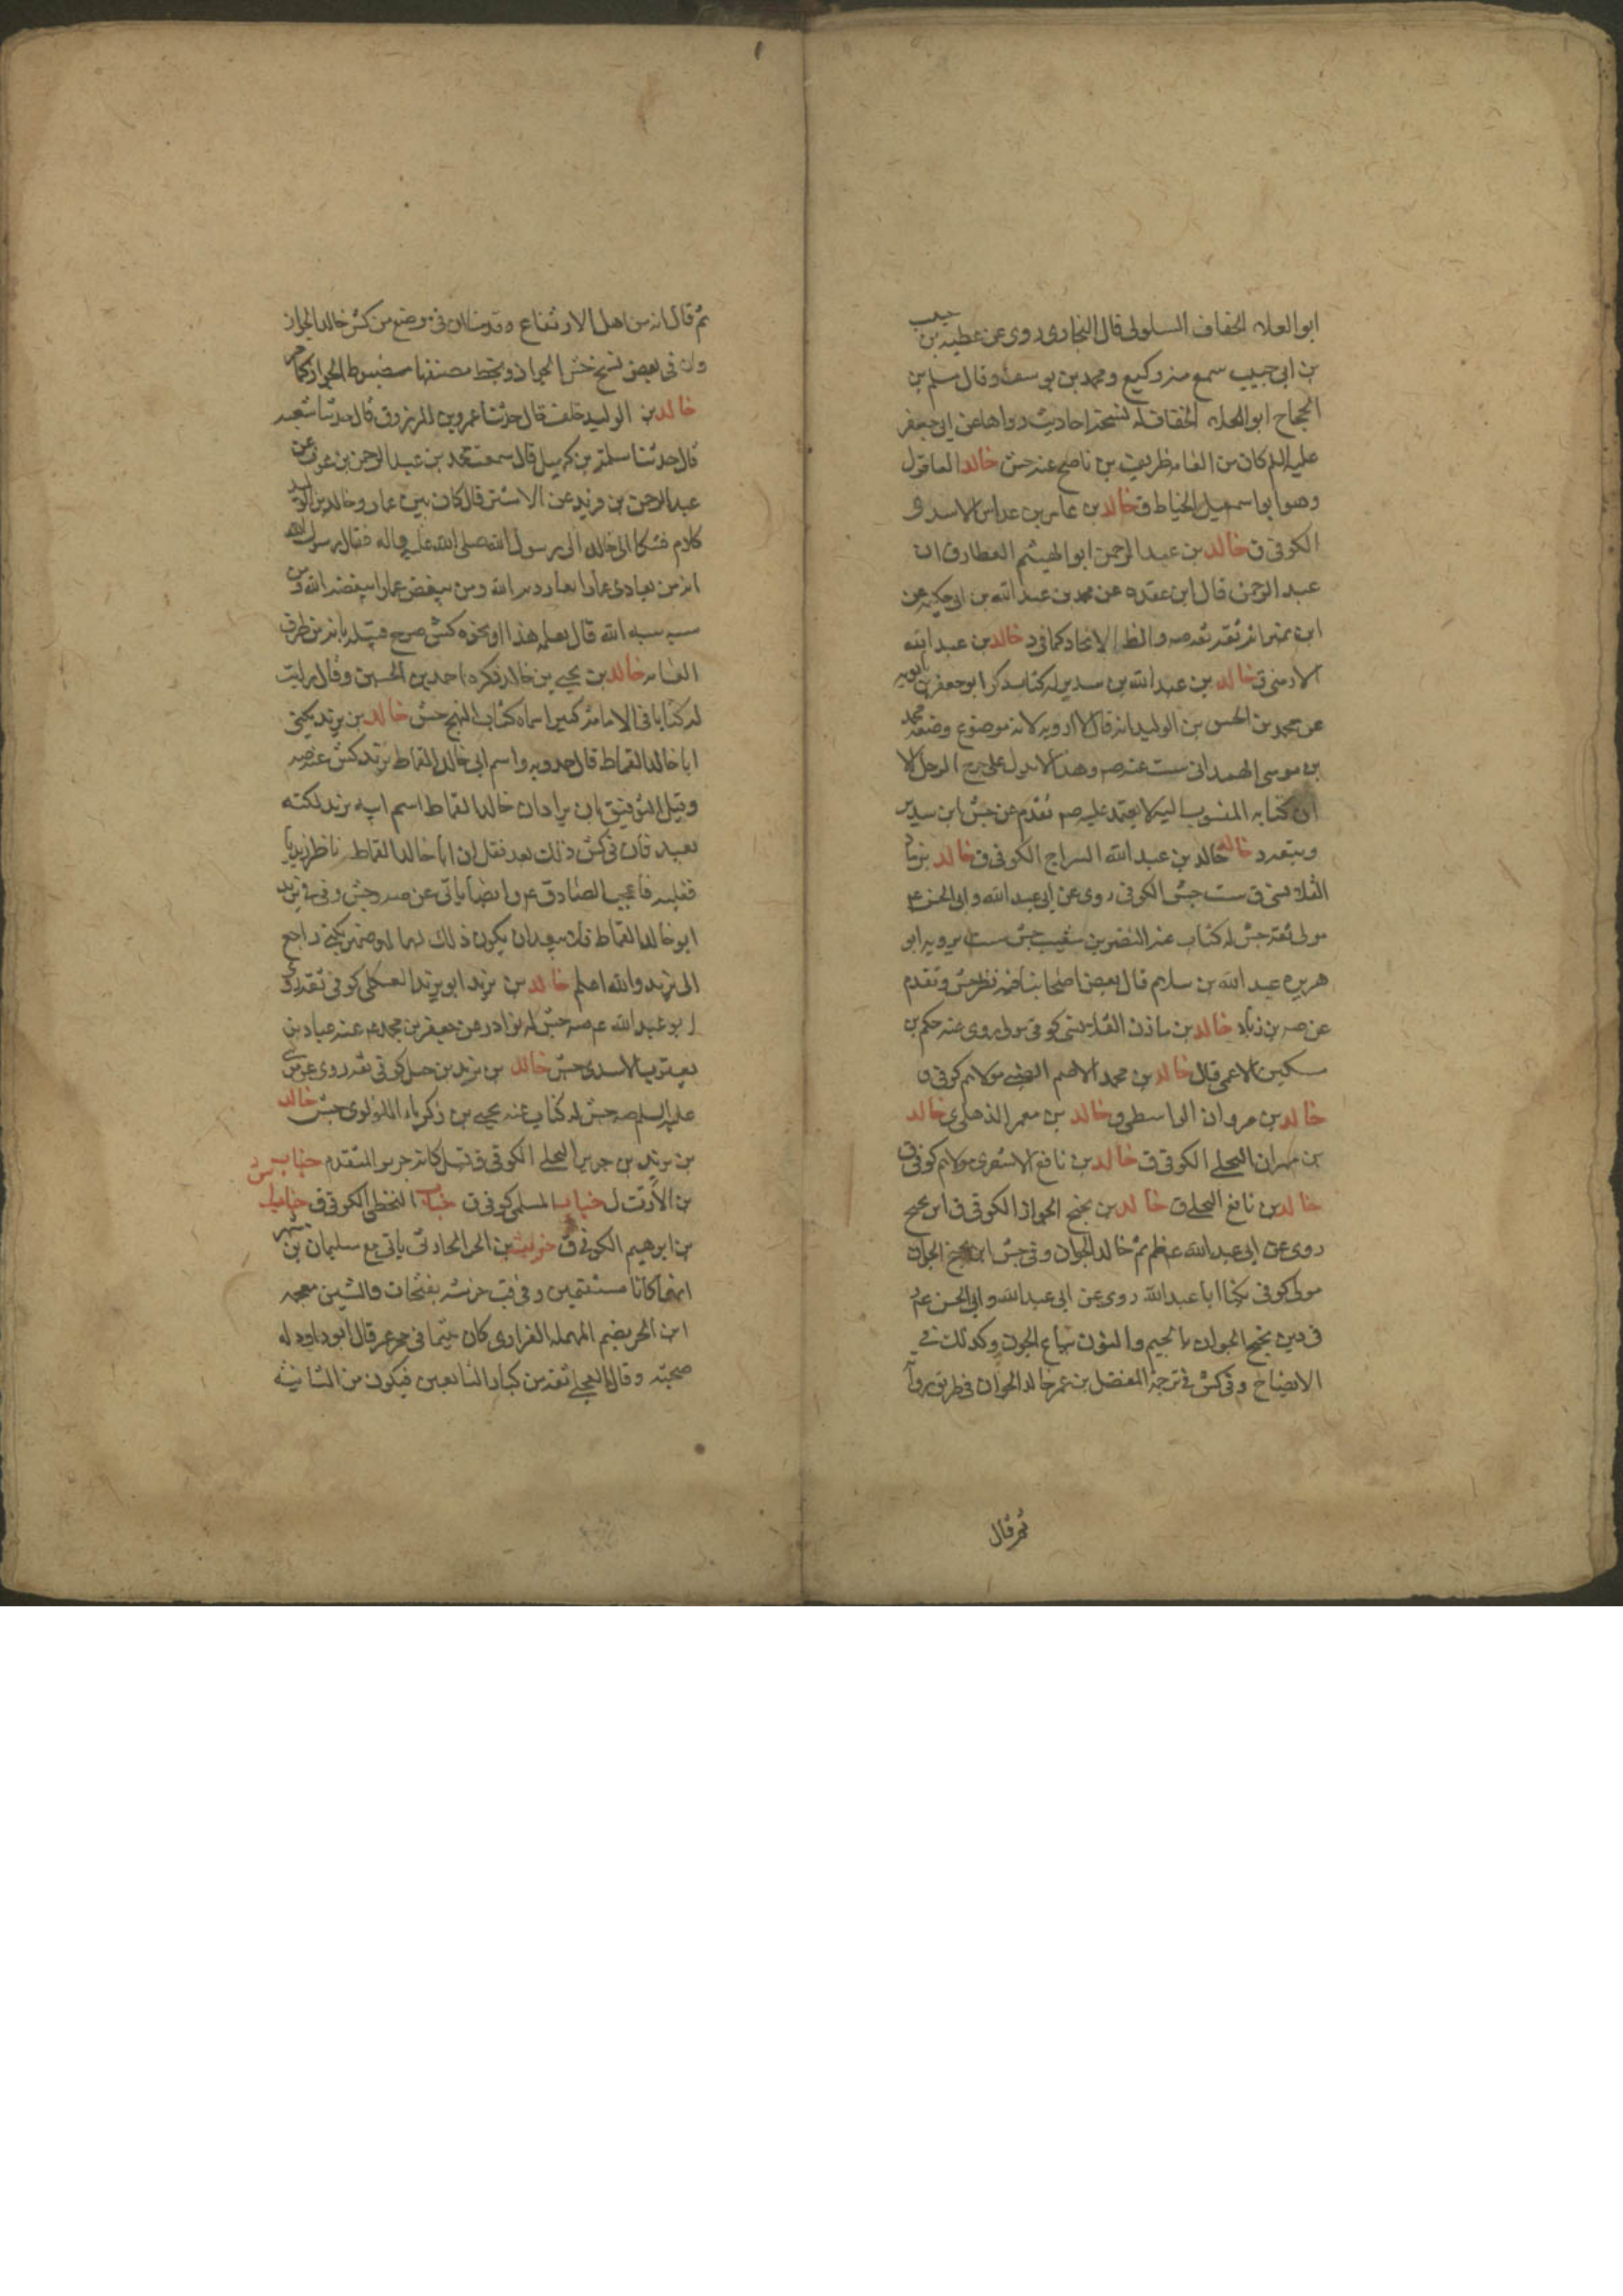 ابو العلاء الخفاف السلولى قال البخارى روى عن عطيه بن حبيب
بن ابى حبيب سمع منه وكيع ومحمد بن يوسف وقال مسلم بن
الحجاج ابو العلاء الخفاف له نسخة احاديث رواها عن ابى جعفر
عليه السلم كان من العامه ظريف بن ناصح عنه جش خالد العاقول
وهو ابو اسمعيل الخياط ق خالد بن عامر بن عداس الاسدى
الكوفى ق خالد بن عبد الرحمن ابو الهيثم العطار ق ان
عبد الرحمن قال ابن عقده عن محمد بن عبد الله بن ابى حكيمه عن
ابن نمير انه ثقة ثقة صه والظ الاتحاد كما فى د خالد بن عبد الله
الارمنى ق خالد بن عبد الله بن سدير له كتاب ذكر ابو جعفر بن بابويه
عن محمد بن الحسن بن الوليد انه قال لا ارويه لانه موضوع وضعه محمد
بن موسى الهمدانى ست عنه صه وهذا لا يدل على جرح الرجل الا
ان كتابه المنسوب اليه لا يعتمد عليه صه تقدم عن جش ابن سدير
خالد بن عبد الله السراج الكوفى ق خالد بن زياد
القلانسى ق ست جش الكوفى روى عن ابى عبد الله وابى الحسن ع
مولى ثقة جش له كتاب عنه النضر بن شعيب جش ست يرويه ابو
هريره عبد الله بن سلام قال بعض اصحابنا فيه نظر جش وتقدم
عن صه بن زياد خالد بن ماد القلانسى كوفى مولى روى عنه حكم بن
مسكين الاعمى قال خالد بن محمد الاصم الضبى مولاهم كوفى ق
خالد بن مروان الواسطى ق خالد بن معمر الذهلى ى خالد
بن مهران البجلى الكوفى ق خالد بن نافع الاشعرى مولاهم كوفى ق
خالد بن نافع البجلى ق خالد بن نجيح الجواز الكوفى ق ابن نجيح
روى عن ابى عبد الله ع ظم ثم خالد الجوان وفى جش ابن نجيح الجوان
مولى كوفى يكنا ابا عبد الله روى عن ابى عبد الله وابى الحسن ع د
فى دين نجيح الجوان بالجيم والنون بياع الجون وكذلك فى
الايضاح وفى كش فى ترجمة المفضل بن عمر خالد الجوان فى طريق رواية
ثم قال
ثم قال انه من اهل الارتفاع وقد ضا ان فى موضع من كش خالد الجواز
وان فى بعض نسخ جش الجواز وبخط مصنفها مضبوط الجواز كما مر
خالد بن الوليد خلف قال حدثنا عمرو بن المرزوق قال حدثنا شعبه
قال حدثنا سلمة بن كهيل قال سمعت محمد بن عبد الرحمن بن عوف عن
عبد الرحمن بن يزيد عن الاشتر قال كان بين عمار وخالد بن الوليد
كلام فشكا الى خالد الى رسول الله صلى الله عليه واله فقال رسول الله
انه من يعادى عمارا يعاديه الله ومن يبغض عمارا يبغضه الله ومن
سبه سبه الله قال سلمه هذا او نحوه كش صرح قتيله بانه من طرف
العامه خالد بن يحيى بن خالد ذكره احمد بن الحسين وقال رايت
له كتابا فى الامامة كبيرا سماه كتاب المنهج جش خالد بن يزيد يكنى
ابا خالد القماط قال حمدويه واسم ابى خالد القماط يزيد كش عنه صه
وقيل التوفيق بان يراد ان خالد القماط اسم ابيه يزيد لكنه
بعيد فان فى كش ذلك بعد نقل ان ابا خالد القماط ناظر زيديا
فغلبه فاعجب الصادق ع وايضا ياتى عن صه وجش وفى ق يزيد
ابو خالد القماط فلا يبعد ان يكون ذلك لهما او ضمير يكنى راجع
الى يزيد والله اعلم خالد بن يزيد ابو يزيد العكلى كوفى ثقة روى
ابو عبد الله ع صه جش له نوادر عن جعفر بن محمد ع عنه عباد بن
يعقوب الاسدى جش خالد بن يزيد بن جبل كوفى ثقة روى عن موسى
عليه السلم صه جش له كتاب عنه يحيى بن زكرياء اللؤلؤى جش خالد
بن يزيد بن جرير البجلى الكوفى ق قيل كانه جرير المتقدم خباب
بن الأرت ل خباب السلمى كوفى ق خباب النخعى الكوفى ق خباب
بن ابرهيم الكوفى ق خرشه بن الحر الحارثى ياتى مع سليمان بن مسهر
انهما كانا مستقيمين وفى قب خرشه بفتحات والشين معجمه
ابن الحر بضم المهمله الفزارى كان يتيما فى حجر عمر قال ابو داود له
صحبته وقال العجلى ثقة من كبار التابعين فيكون من الثانيه